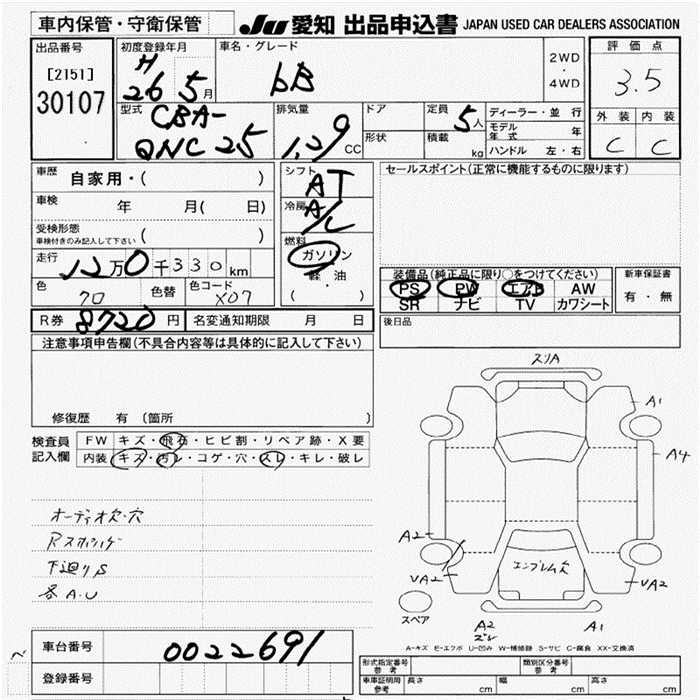 車内保管・守衛保管
JU 愛知 出品申込書 JAPAN USED CAR DEALERS ASSOCIATION
出品番号
[2151]
30107
初度登録年月
H
26 5月
車名・グレード
bB
2WD
・
4WD
評価点
3.5
外装 内装
C C
型式
CBA-
QNC25
排気量
1.29 CC
ドア
形状
定員
5人
積載 kg
ディーラー・並行
モデル年式 年
ハンドル 左・右
車歴
自家用・( )
車検
年 月( 日)
受検形態
車検付きのみ記入して下さい ( )
走行
12万0千330km
色
70
色替
色コード
X07
シフト
AT
冷房
A/C
燃料
ガソリン
軽・油
( )
セールスポイント(正常に機能するものに限ります)
装備品(純正品に限り○をつけてください)
PS PW エアB AW
SR ナビ TV カワシート
新車保証書
有・無
後日品
R券 8720円
名変通知期限 月 日
注意事項申告欄(不具合内容等は具体的に記入して下さい)
修復歴 有 (箇所
検査員
記入欄
FW キズ・飛石・ヒビ割・リペア跡・X要
内装 キズ・汚レ・コゲ・穴・スレ・キレ・破レ
オーディオ欠・穴
下廻りS
各A.U
スリA
A1
A4
A2
VA2
エンブレム欠
VA2
A2
ズレ
A1
スペア
A-キズ E-エクボ U-凹み W-補修跡 S-サビ C-腐食 XX-交換済
車台番号
0022691
登録番号
形式指定番号
参考
類別区分番号
参考
車庫証明用
参考
長さ cm
幅 cm
高さ cm